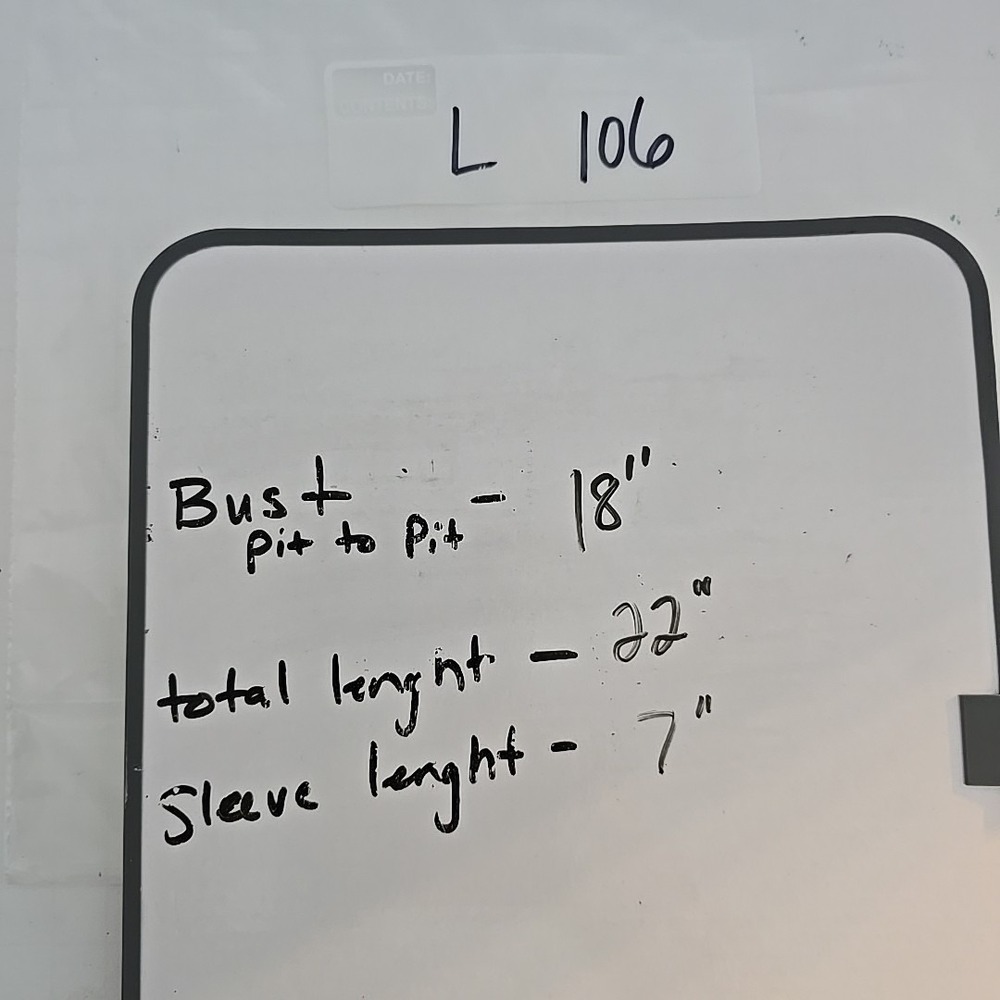 DATE:
CONTENTS:
L 106
Bust - 18"
pit to pit
total lenght - 22"
Sleeve lenght - 7"